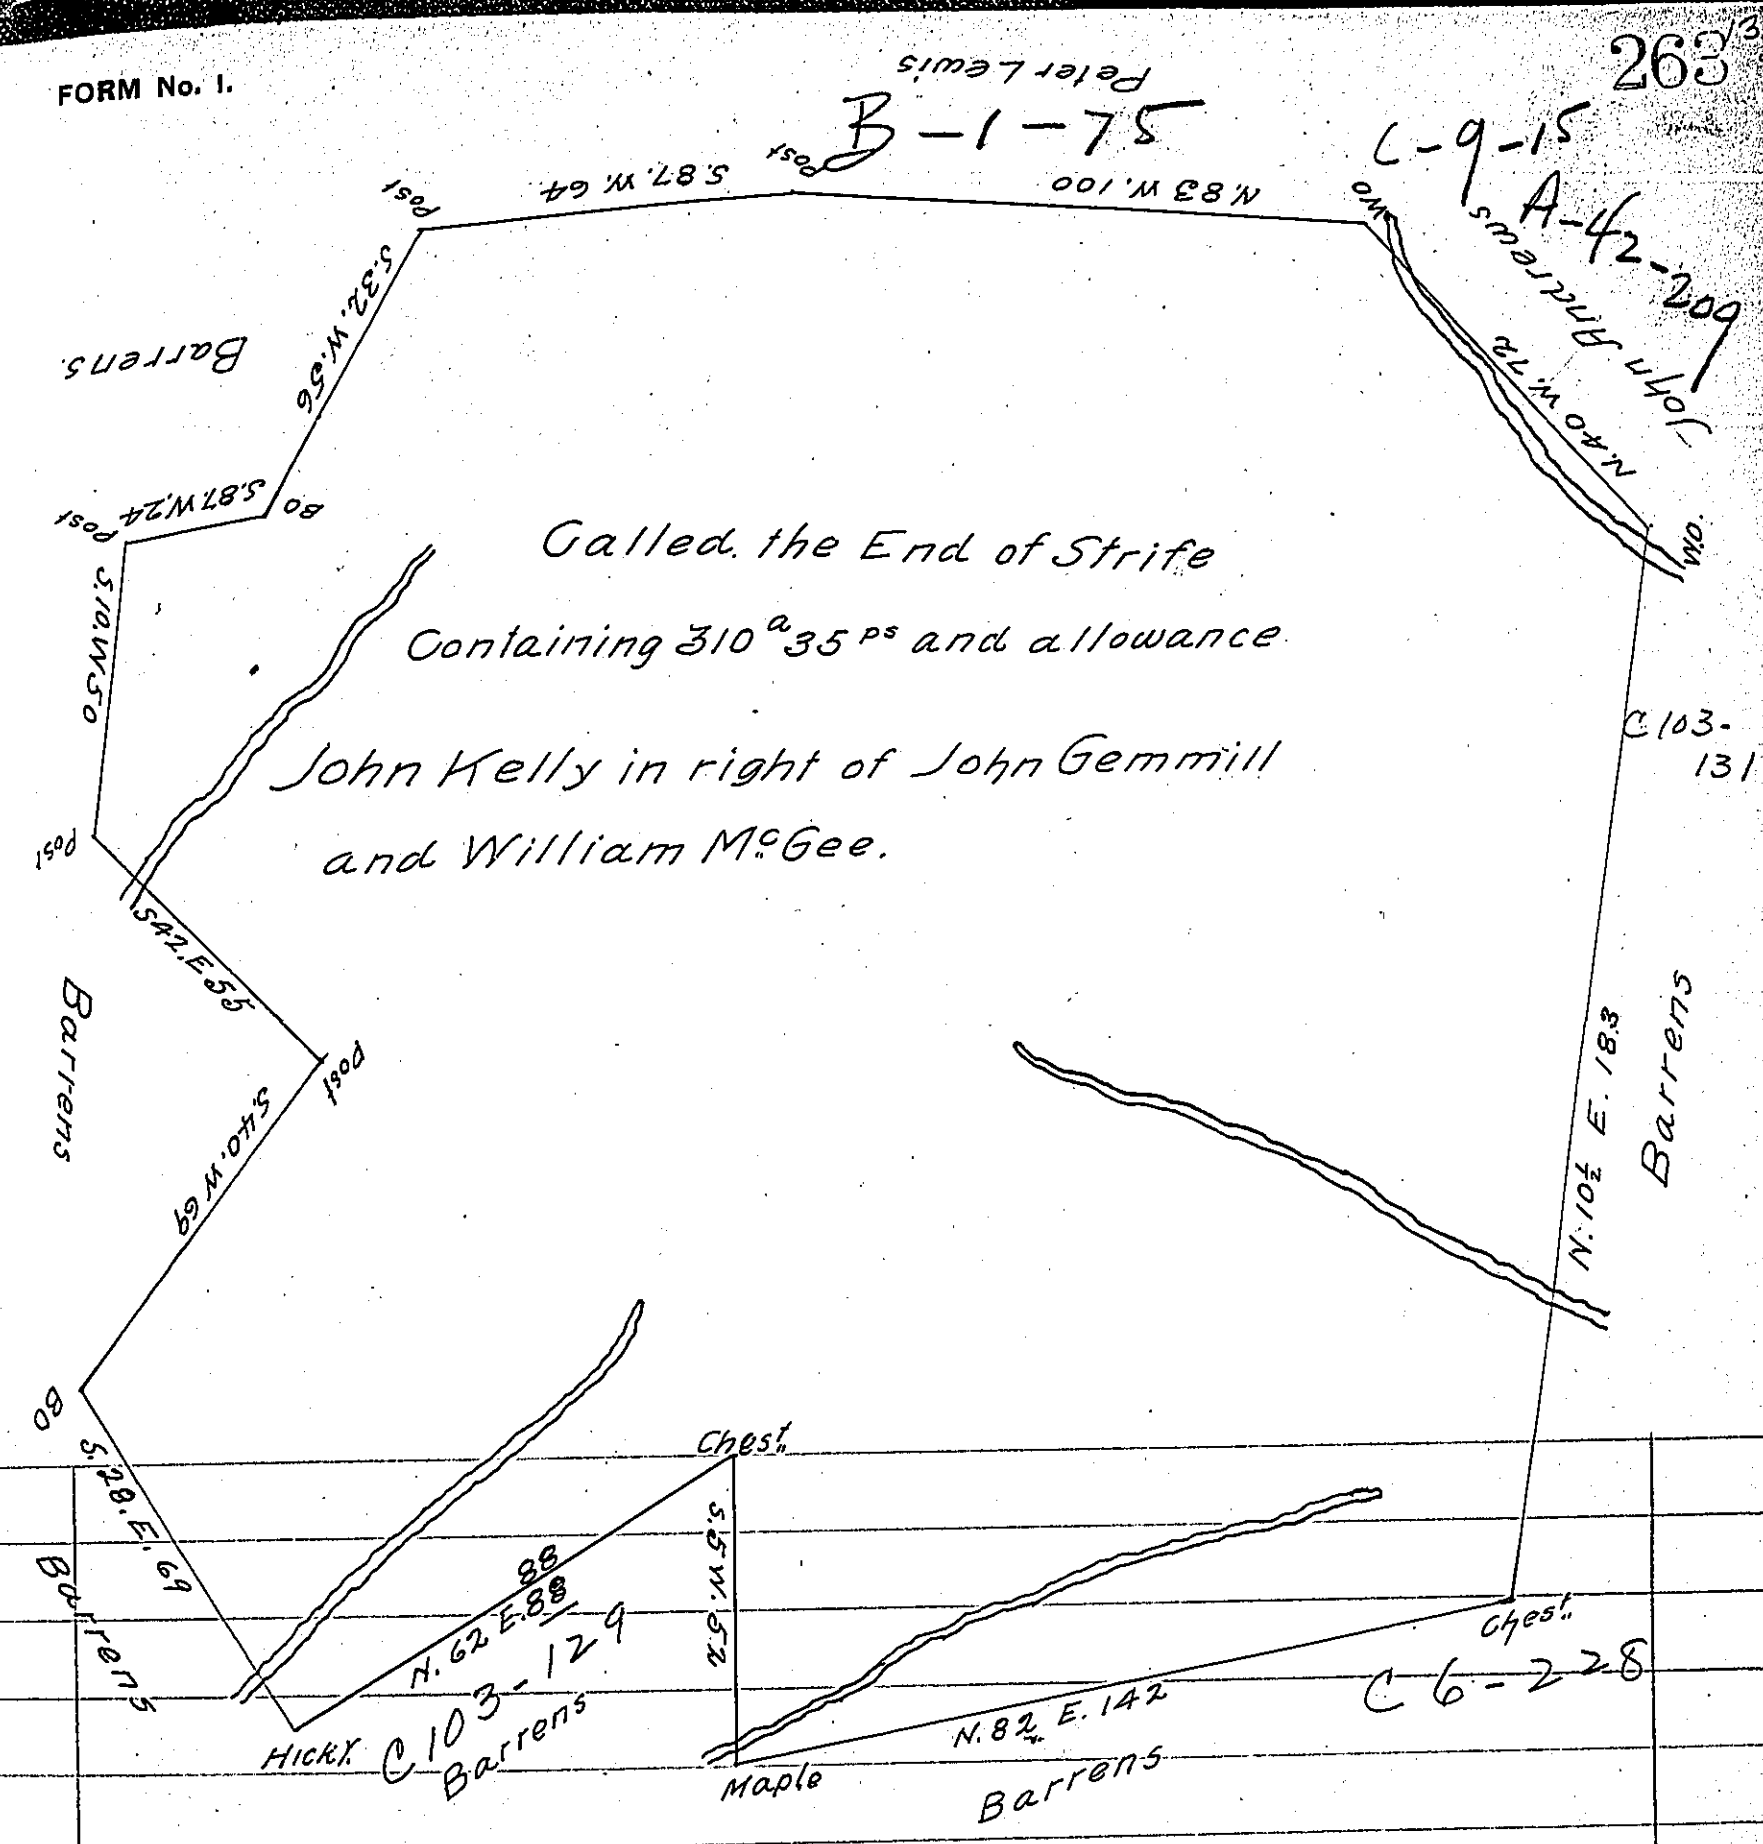 FORM No. 1.
263
13
Peter Lewis
B-1-75
C-9-15
A-42-209
John Andrews
Post
S.87.W.64
Post
N.83 W.100
WO
N.40 W.72
W.O.
S.32.W.56
Barrens.
BO
S.87.W.24
Post
S.10.W50
Post
Called. the End of Strife
Containing 310 a 35 ps and allowance
John Kelly in right of John Gemmill
and William McGee.
C 103-
131
S42.E55
Barrens
Post
S.40.W69
BO
N.10½ E. 183
Barrens
S.28.E.69
Barrens
Chest.
S.5W.52
88
N.62 E.88
C 103-129
Barrens
Hicky.
Maple
N.82 E.142
Barrens
Chest.
C 6-228